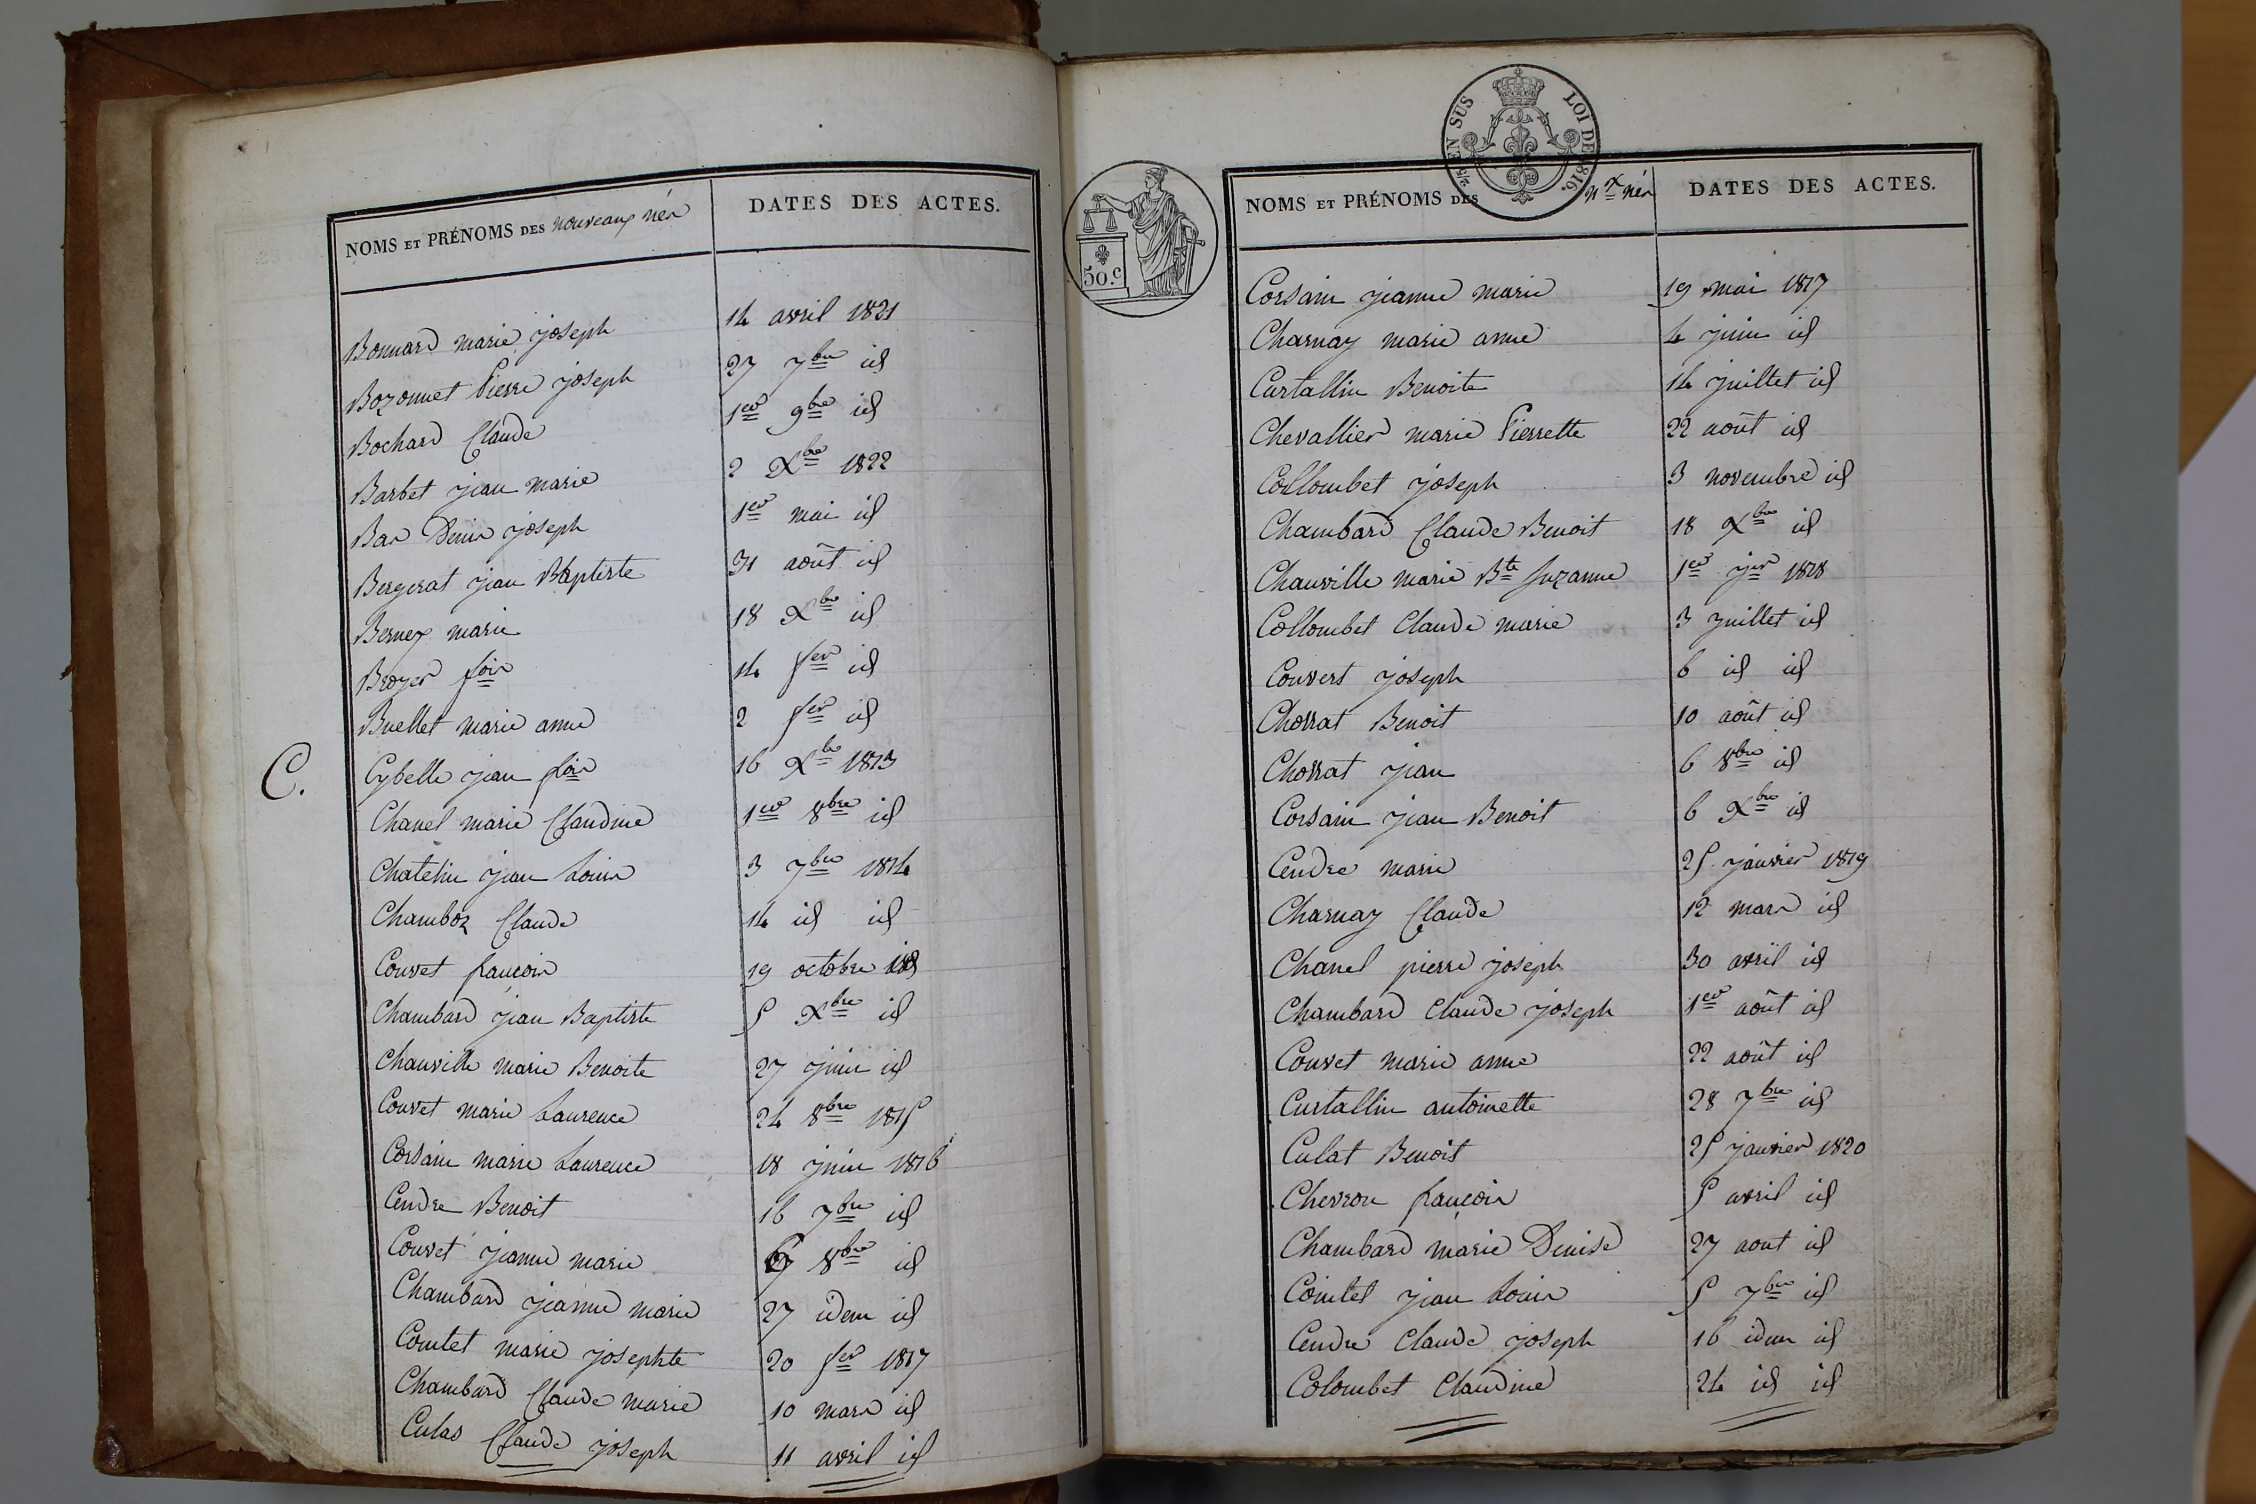 NOMS ET PRÉNOMS DES nouveaux nés DATES DES ACTES.
Bonnard marie joseph 14 avril 1821
Bozonnet Pierre joseph 27 7bre id
Bochard Claude 1er 9bre id
Barbet jean marie 2 Xbre 1822
Bas Denis joseph 1er mai id
Bergerat jean Baptiste 31 août id
Bernex marie 18 Xbre id
Broyer fois 14 fer id
Buellet marie anne 2 fer id
C.
Cybelle jean fois 16 Xbre 1813
Chanel marie Claudine 1er 8bre id
Chatelin jean Louis 3 7bre 1814
Chamboz Claude 14 id id
Couvet françois 19 octobre id
Chambard jean Baptiste 5 Xbre id
Chauville marie Benoite 27 juin id
Couvet marie Laurence 24 8bre 1815
Corsain marie Laurence 18 juin 1816
Cendre Benoit 16 7bre id
Couvet jeanne marie 8bre id
Chambard jeanne marie 27 idem id
Comtet marie josephte 20 fer 1817
Chambard Claude marie 10 mars id
Culas Claude joseph 11 avril id
50.c
2/5 EN SUS LOI DE 1816.
NOMS ET PRÉNOMS DES nx nés DATES DES ACTES.
Corsain jeanne marie 19 mai 1817
Charnay marie anne 4 juin id
Curtallin Benoite 14 juillet id
Chevallier marie Pierrette 22 août id
Collombet joseph 3 novembre id
Chambard Claude Benoit 18 Xbre id
Chauville marie Bte Suzanne 1er jer 1818
Collombet Claude marie 3 juillet id
Couvert joseph 6 id id
Chorrat Benoit 10 août id
Chorrat jean 6 8bre id
Corsain jean Benoit 6 Xbre id
Cendre marie 25 janvier 1819
Charnay Claude 12 mars id
Chanel pierre joseph 30 avril id
Chambard Claude joseph 1er août id
Couvet marie anne 22 août id
Curtallin antoinette 28 7bre id
Culat Benoit 25 janvier 1820
Chevron françois 5 avril id
Chambard marie Denise 27 aout id
Comtet jean Louis 5 7bre id
Cendre Claude joseph 16 idem id
Colombet Claudine 24 id id